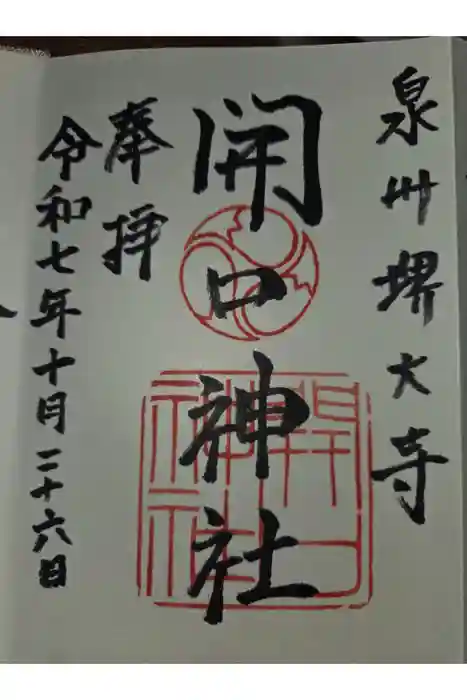 泉州堺大寺
開口神社
開口神社
奉拝
令和七年十月二十六日